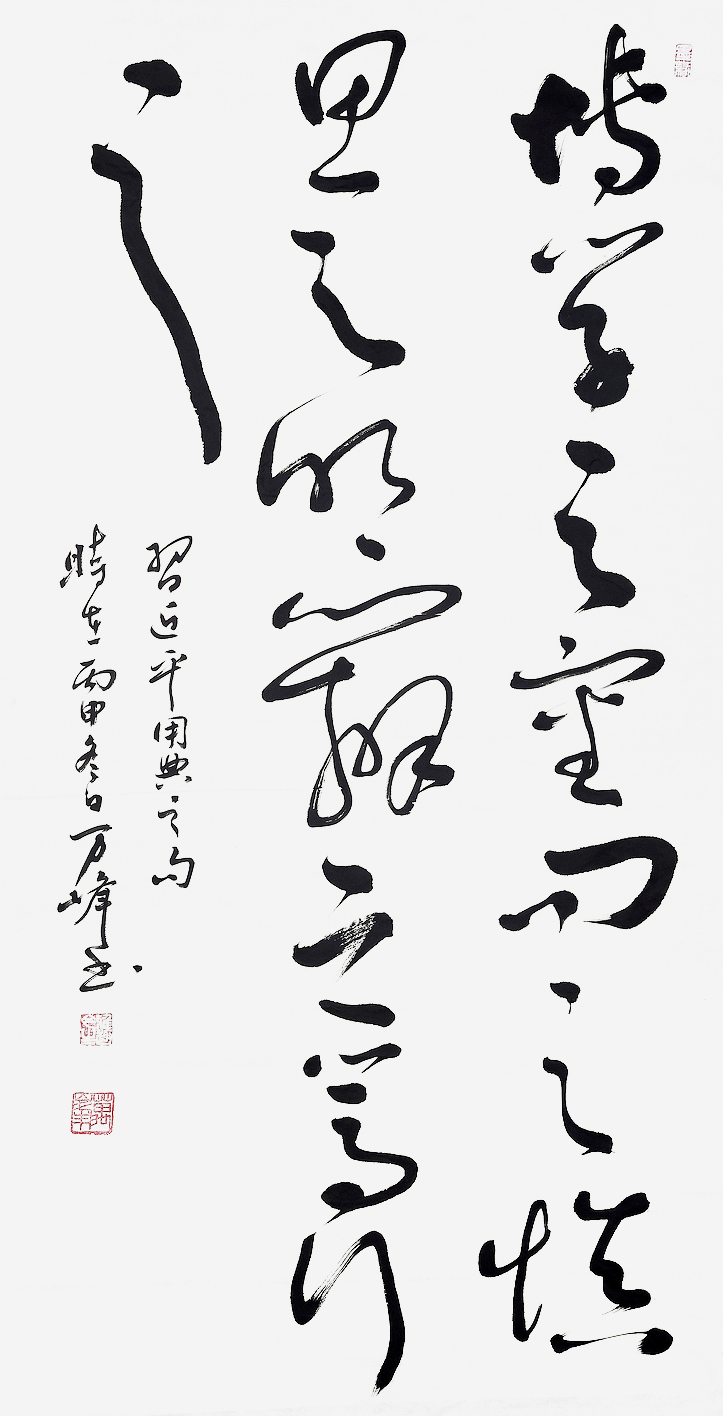 博学之审问之慎
思之明辨之笃行
之
習近平用典之句
時在丙申冬日万峰书